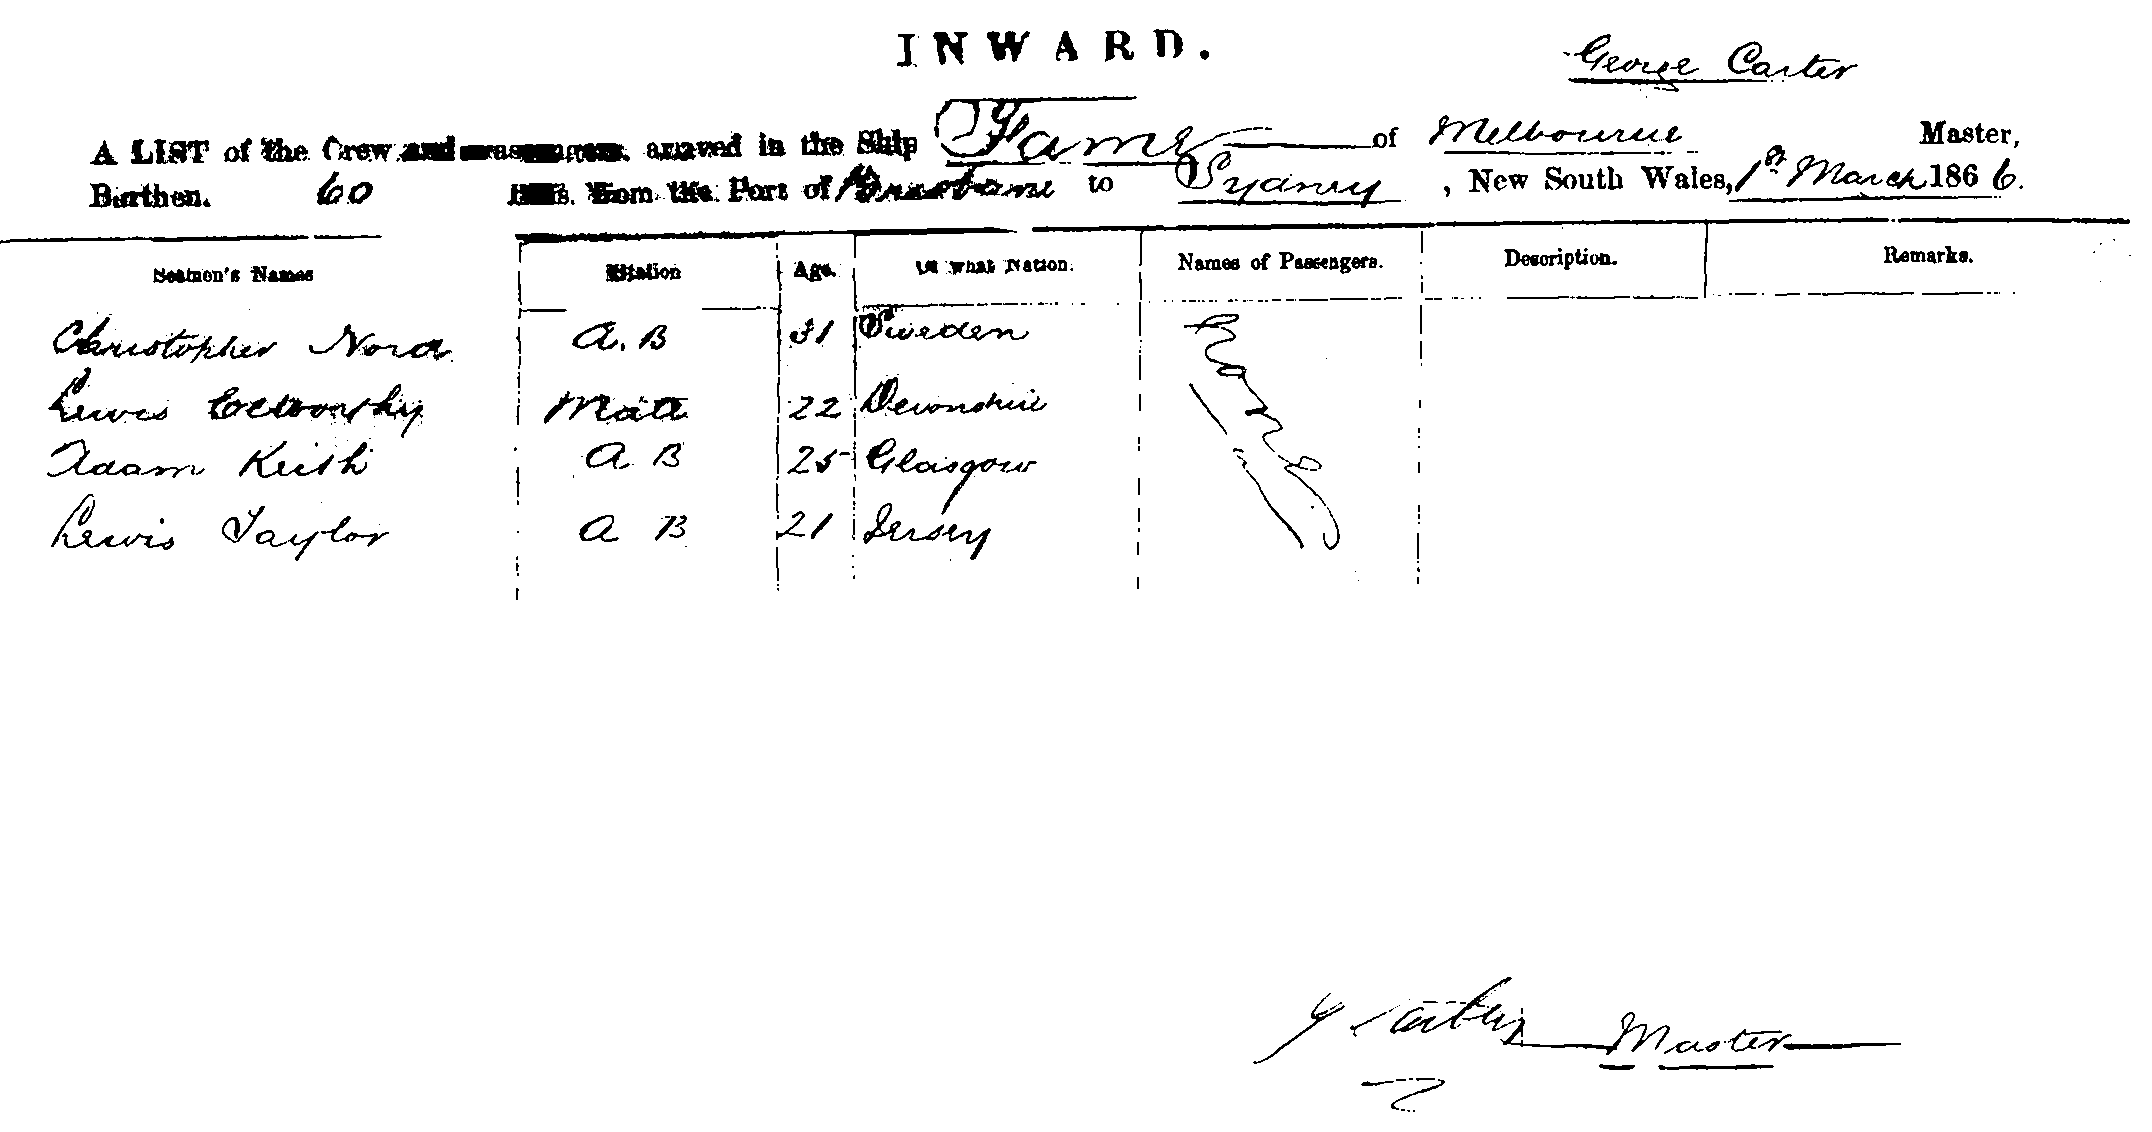 INWARD.
George Carter
A LIST of the Crew and arrived in the Ship Fame of Melbourne Master,
Burthen. 60 Tons. from the Port of Brisbane to Sydney, New South Wales, 1st March 1866.
Seamen's Names Station Age. Of what Nation. Names of Passengers. Description. Remarks.
Christopher Nord A.B 31 Sweden
Lewis Mate 22 Devonshire
Adam Keith A B 25 Glasgow
Lewis Taylor A B 21 Jersey
None
G Carter Master